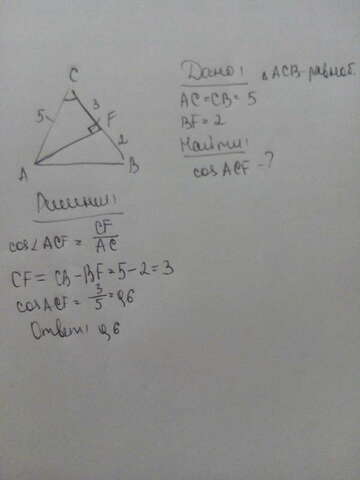 C
5
3
F
2
A
B
Дано: ΔACB-равноб.
AC=CB=5
BF=2
Найти:
cos ACF-?
Решение:
cos∠ACF = CF/AC
CF = CB-BF=5-2=3
cos ACF = 3/5=0,6
Ответ: 0,6